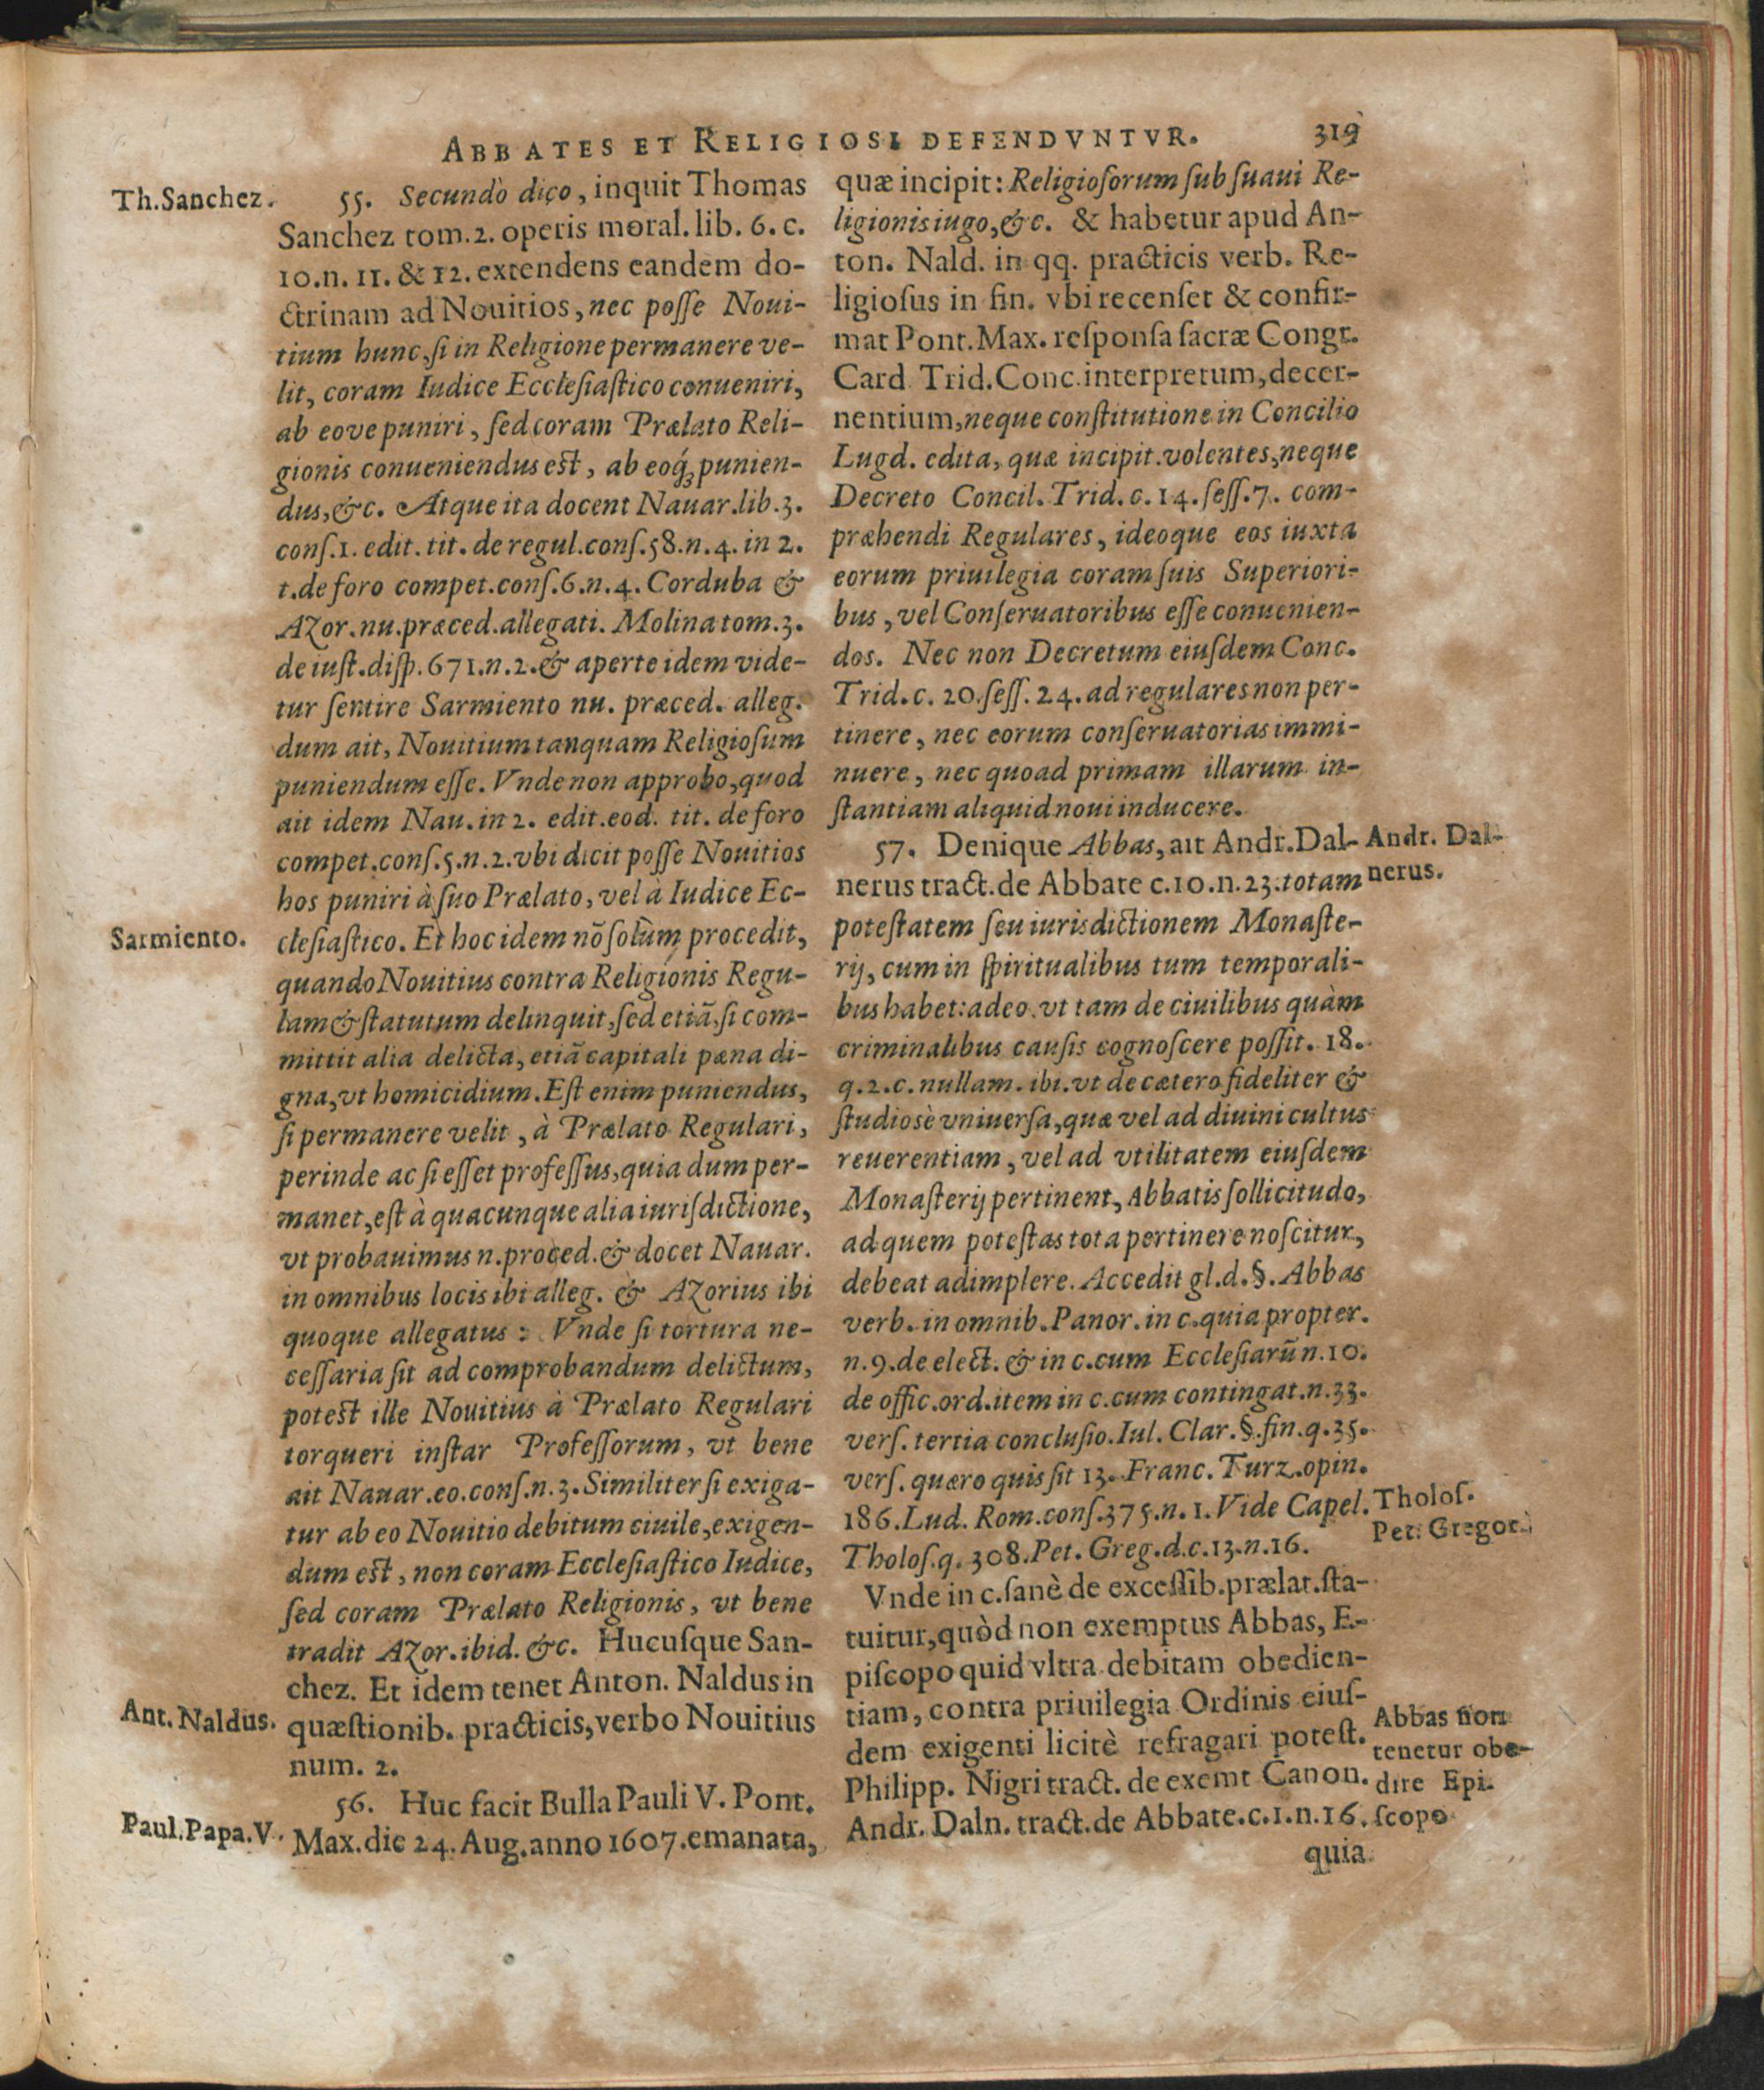 ABBATES ET RELIGIOSI DEFENDVNTVR. 319
Th.Sanchez.
55. Secundò dico, inquit Thomas
Sanchez tom.2. operis moral. lib. 6. c.
10.n. 11. & 12. extendens eandem do-
ctrinam ad Nouitios, nec posse Noui-
tium hunc, si in Religione permanere ve-
lit, coram Iudice Ecclesiastico conueniri,
ab eove puniri, sed coram Prælato Reli-
gionis conueniendus est, ab eoq́ꝫ punien-
dus, &c. Atque ita docent Nauar.lib.3.
cons.1. edit. tit. de regul.cons.58.n.4. in 2.
t.de foro compet.cons.6.n.4. Corduba &
Azor.nu.præced.allegati. Molina tom.3.
de iust.disp.671.n.2.& aperte idem vide-
tur sentire Sarmiento nu. præced. alleg.
dum ait, Nouitium tanquam Religiosum
puniendum esse. Vnde non approbo, quod
ait idem Nau.in 2. edit.eod. tit. de foro
compet.cons.5.n.2.vbi dicit posse Nouitios
hos puniri à suo Prælato, vel à Iudice Ec-
Sarmiento.
clesiastico. Et hoc idem nõ solùm procedit,
quando Nouitius contra Religionis Regu-
lam & statutum delinquit, sed etiã, si com-
mittit alia delicta, etiã capitali pæna di-
gna, vt homicidium. Est enim puniendus,
si permanere velit, à Prælato Regulari,
perinde ac si esset professus, quia dum per-
manet, est à quacunque alia iurisdictione,
vt probauimus n. proced. & docet Nauar.
in omnibus locis ibi alleg. & Azorius ibi
quoque allegatus: Vnde si tortura ne-
cessaria sit ad comprobandum delictum,
potest ille Nouitius à Prælato Regulari
torqueri instar Professorum, vt bene
ait Nauar.eo.cons.n.3. Similiter si exiga-
tur ab eo Nouitio debitum ciuile, exigen-
dum est, non coram Ecclesiastico Iudice,
sed coram Prælato Religionis, vt bene
tradit Azor.ibid. &c. Hucusque San-
chez. Et idem tenet Anton. Naldus in
Ant. Naldus.
quæstionib. practicis, verbo Nouitius
num. 2.
56. Huc facit Bulla Pauli V. Pont.
Paul.Papa.V.
Max.die 24. Aug.anno 1607.emanata,
quæ incipit: Religiosorum sub suaui Re-
ligionis iugo, &c. & habetur apud An-
ton. Nald. in qq. practicis verb. Re-
ligiosus in fin. vbi recenset & confir-
mat Pont. Max. responsa sacræ Congr.
Card Trid.Conc.interpretum, decer-
nentium, neque constitutione in Concilio
Lugd. edita, quæ incipit.volentes, neque
Decreto Concil. Trid. c. 14. sess.7. com-
præhendi Regulares, ideoque eos iuxta
eorum priuilegia coram suis Superiori-
bus, vel Conseruatoribus esse conuenien-
dos. Nec non Decretum eiusdem Conc.
Trid.c. 20.sess. 24. ad regulares non per-
tinere, nec eorum conseruatorias immi-
nuere, nec quoad primam illarum in-
stantiam aliquid noui inducere.
57. Denique Abbas, ait Andr.Dal-
Andr. Dal-
nerus tract.de Abbate c.10.n.23.totam
nerus.
potestatem seu iurisdictionem Monaste-
rij, cum in spiritualibus tum temporali-
bus habet: adeo.vt tam de ciuilibus quàm
criminalibus causis cognoscere possit. 18.
q.2.c.nullam.ibi.vt de cætero fideliter &
studiosè vniuersa, quæ vel ad diuini cultus
reuerentiam, vel ad vtilitatem eiusdem
Monasterij pertinent, Abbatis sollicitudo,
ad quem potestas tota pertinere noscitur,
debeat adimplere. Accedit gl.d.§. Abbas
verb. in omnib. Panor. in c.quia propter.
n.9.de elect. & in c.cum Ecclesiarũ n.10.
de offic.ord.item in c.cum contingat.n.33.
vers. tertia conclusio. Iul. Clar.§.fin.q.35.
vers. quæro quis sit 13. Franc. Turz.opin.
186. Lud. Rom.cons.375.n.1. Vide Capel.
Tholos.
Tholos.q.308.Pet. Greg.d.c.13.n.16.
Pet. Gregor.
Vnde in c.sanè de excessib.prælat.sta-
tuitur, quòd non exemptus Abbas, E-
piscopo quid vltra debitam obedien-
tiam, contra priuilegia Ordinis eius-
dem exigenti licitè refragari potest.
Philipp. Nigri tract. de exemt Canon.
Andr. Daln. tract.de Abbate.c.1.n.16.
Abbas non
tenetur obe-
dire Epi-
scopo
quia